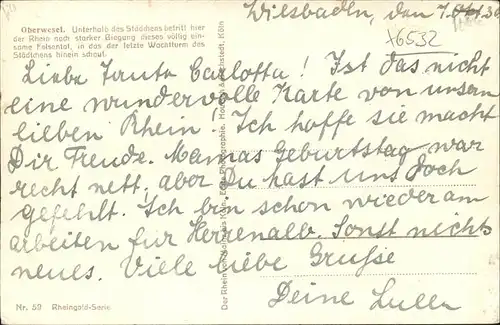 Oberwesel. Unterhalb des Städtchens betritt hier
der Rhein nach starker Biegung dieses völlig ein-
same Felsental, in das der letzte Wacatturm des
Städtchens hinein schaut.
Wiesbaden, den 7.
x6532
Liebe Tante Carlotta! Ist das nicht
eine wundervolle Karte von unserm
lieben Rhein? Ich hoffe sie macht
Dir Freude. Mamas Geburtstag war
recht nett, aber Du hast uns doch
gefehlt. Ich bin schon wieder am
arbeiten für Herrenalb. Sonst nichts
neues. Viele liebe Grüße
Deine Lullu
Nr. 59 Rheingold-Serie